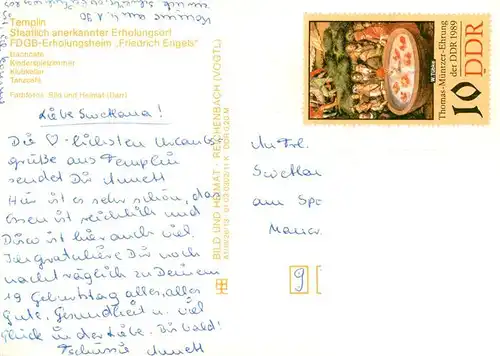 Templin
Staatlich anerkannter Erholungsort
FDGB-Erholungsheim „Friedrich Engels“
Kinderspielzimmer
Klubkeller
Tanzcafé
Farbfotos: Bild und Heimat (Darr)
Liebe Swetlana!
Die ♡-lichsten Urlaubs-
grüße aus Templin
sendet Dir Anett
Hier ist es sehr schön, das
Essen ist reichlich und
Disco ist hier auch viel.
Ich gratuliere Dir noch
nachträglich zu Deinem
19 Geburtstag alles, alles
Gute, Gesundheit u. viel
Glück in der Liebe. Bis bald!
Tschüssi Anett
BILD UND HEIMAT · REICHENBACH (VOGTL)
An Frl.
Swetlan
am
9
Thomas-Müntzer-Ehrung
der DDR 1989
10 DDR